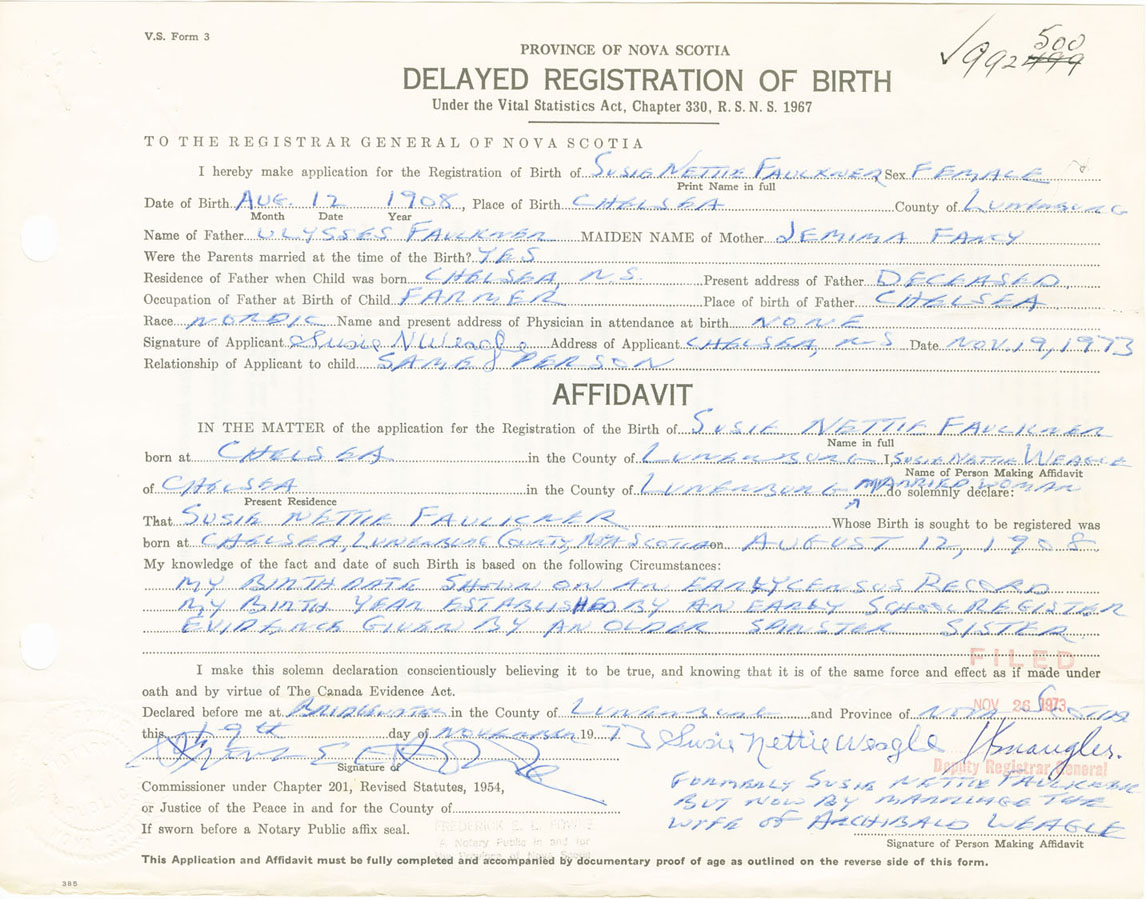 V.S. Form 3
500
1992 499
PROVINCE OF NOVA SCOTIA
DELAYED REGISTRATION OF BIRTH
Under the Vital Statistics Act, Chapter 330, R.S.N.S. 1967
TO THE REGISTRAR GENERAL OF NOVA SCOTIA
I hereby make application for the Registration of Birth of SUSIE NETTIE FAULKNER Sex FEMALE
Print Name in full
Date of Birth AUG. 12 1908, Place of Birth CHELSEA County of LUNENBURG
Month Date Year
Name of Father ULYSSES FAULKNER MAIDEN NAME of Mother JEMIMA FANCY
Were the Parents married at the time of the Birth? YES
Residence of Father when Child was born CHELSEA, N.S. Present address of Father DECEASED
Occupation of Father at Birth of Child FARMER Place of birth of Father CHELSEA
Race NORDIC Name and present address of Physician in attendance at birth NONE
Signature of Applicant Susie N Weagle Address of Applicant CHELSEA, N-S Date NOV. 19, 1973
Relationship of Applicant to child SAME PERSON
AFFIDAVIT
IN THE MATTER of the application for the Registration of the Birth of SUSIE NETTIE FAULKNER
Name in full
born at CHELSEA in the County of LUNENBURG I, SUSIE NETTIE WEAGLE
Name of Person Making Affidavit
of CHELSEA in the County of LUNENBURG MARRIED WOMAN do solemnly declare:
Present Residence
That SUSIE NETTIE FAULKNER Whose Birth is sought to be registered was
born at CHELSEA, LUNENBURG COUNTY, NOVA SCOTIA on AUGUST 12, 1908
My knowledge of the fact and date of such Birth is based on the following Circumstances:
MY BIRTHDATE SHOWN ON AN EARLY CENSUS RECORD
MY BIRTH YEAR ESTABLISHED BY AN EARLY SCHOOL REGISTER
EVIDENCE GIVEN BY AN OLDER SPINSTER SISTER
FILED
I make this solemn declaration conscientiously believing it to be true, and knowing that it is of the same force and effect as if made under
oath and by virtue of The Canada Evidence Act.
NOV 26 1973
Declared before me at BRIDGEWATER in the County of LUNENBURG and Province of NOVA SCOTIA
this 19th day of NOVEMBER 1973 Susie Nettie Weagle
Deputy Registrar General
Signature of
FORMERLY SUSIE NETTIE FAULKNER
Commissioner under Chapter 201, Revised Statutes, 1954,
BUT NOW BY MARRIAGE THE
or Justice of the Peace in and for the County of
WIFE OF ARCHIBALD WEAGLE
If sworn before a Notary Public affix seal.
A Notary Public in and for
Signature of Person Making Affidavit
This Application and Affidavit must be fully completed and accompanied by documentary proof of age as outlined on the reverse side of this form.
385